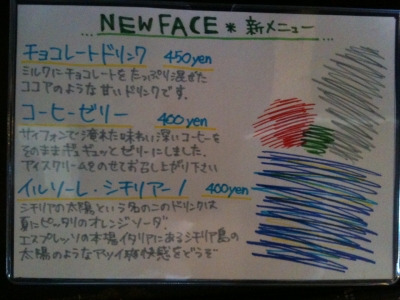 NEW FACE * 新メニュー
チョコレートドリンク 450yen
ミルクにチョコレートをたっぷり混ぜた
ココアのような甘いドリンクです。
コーヒーゼリー 400yen
サイフォンで淹れた味わい深いコーヒーを
そのままギュギュッとゼリーにしました。
アイスクリームをのせてお召し上がり下さい
イルソーレ・シチリアーノ 400yen
シチリアの太陽という名のこのドリンクは
夏にピッタリのオレンジソーダ。
エスプレッソの本場イタリアにあるシチリア島の
太陽のようなアツイ爽快感をどうぞ